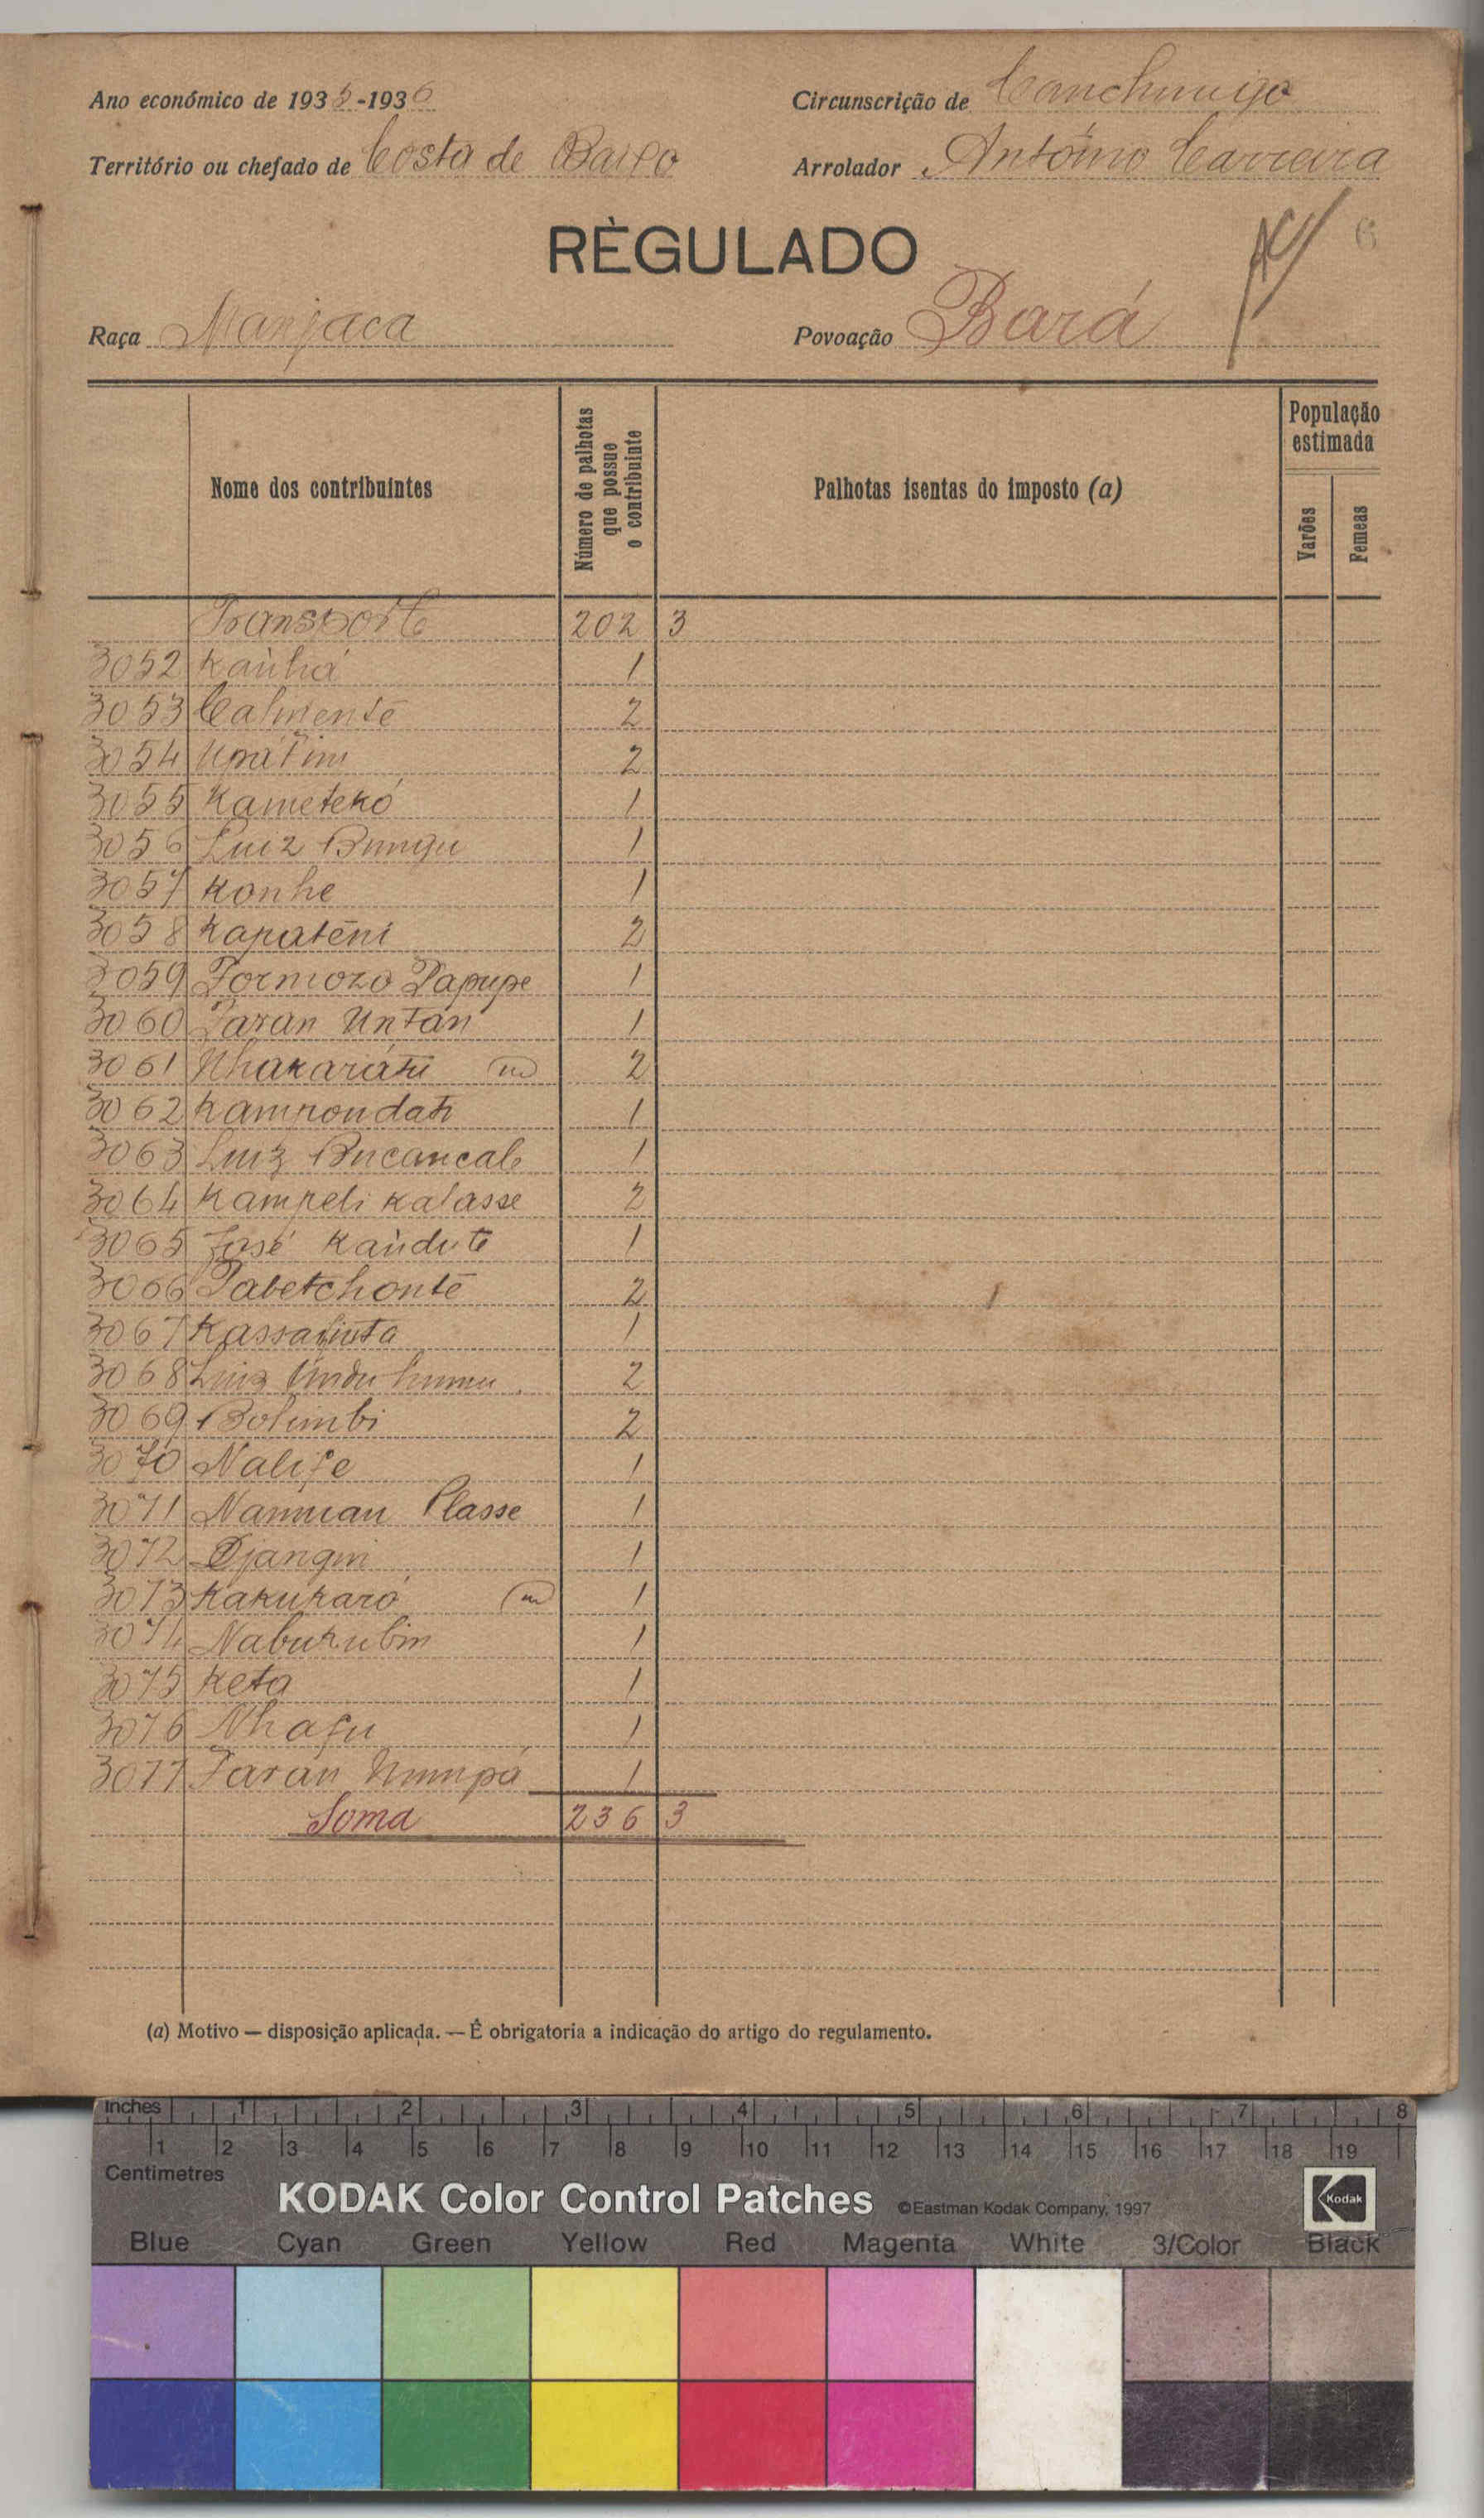 Ano económico de 1935-1936
Circunscrição de Canchungo
Território ou chefado de Costa de Baixo
Arrolador António Carreira
RÈGULADO
6
Raça Manjaca
Povoação Bará
Nome dos contribuintes
Número de palhotas que possue o contribuinte
Palhotas isentas do imposto (a)
População estimada
Varões
Femeas
Transporte 202 3
3052 Kaùhá 1
3053 Calmenté 2
3054 2
3055 Kametekó 1
3056 Luiz Bungu 1
3057 Konhe 1
3058 Kapatêni 2
3059 Formozo Papupe 1
3060 Jaran Untán 1
3061 Nhakaráti 2
3062 Kampondati 1
3063 Luiz Bucancale 1
3064 Kampeli Kalasse 2
3065 José Kaùdute 1
3066 Pabetchonté 2
3067 1
3068 Luiz 2
3069 Bolimbi 2
3070 Nalife 1
3071 Nannian Plasse 1
3072 Djangui 1
3073 Kakukaró 1
3074 Nabukubin 1
3075 Keta 1
3076 Nhafu 1
3077 Jaran Numpá 1
Soma 236 3
(a) Motivo — disposição aplicada. — É obrigatoria a indicação do artigo do regulamento.
Inches 1 2 3 4 5 6 7 8
1 2 3 4 5 6 7 8 9 10 11 12 13 14 15 16 17 18 19
Centimetres
KODAK Color Control Patches ©Eastman Kodak Company, 1997 Kodak
Blue Cyan Green Yellow Red Magenta White 3/Color Black